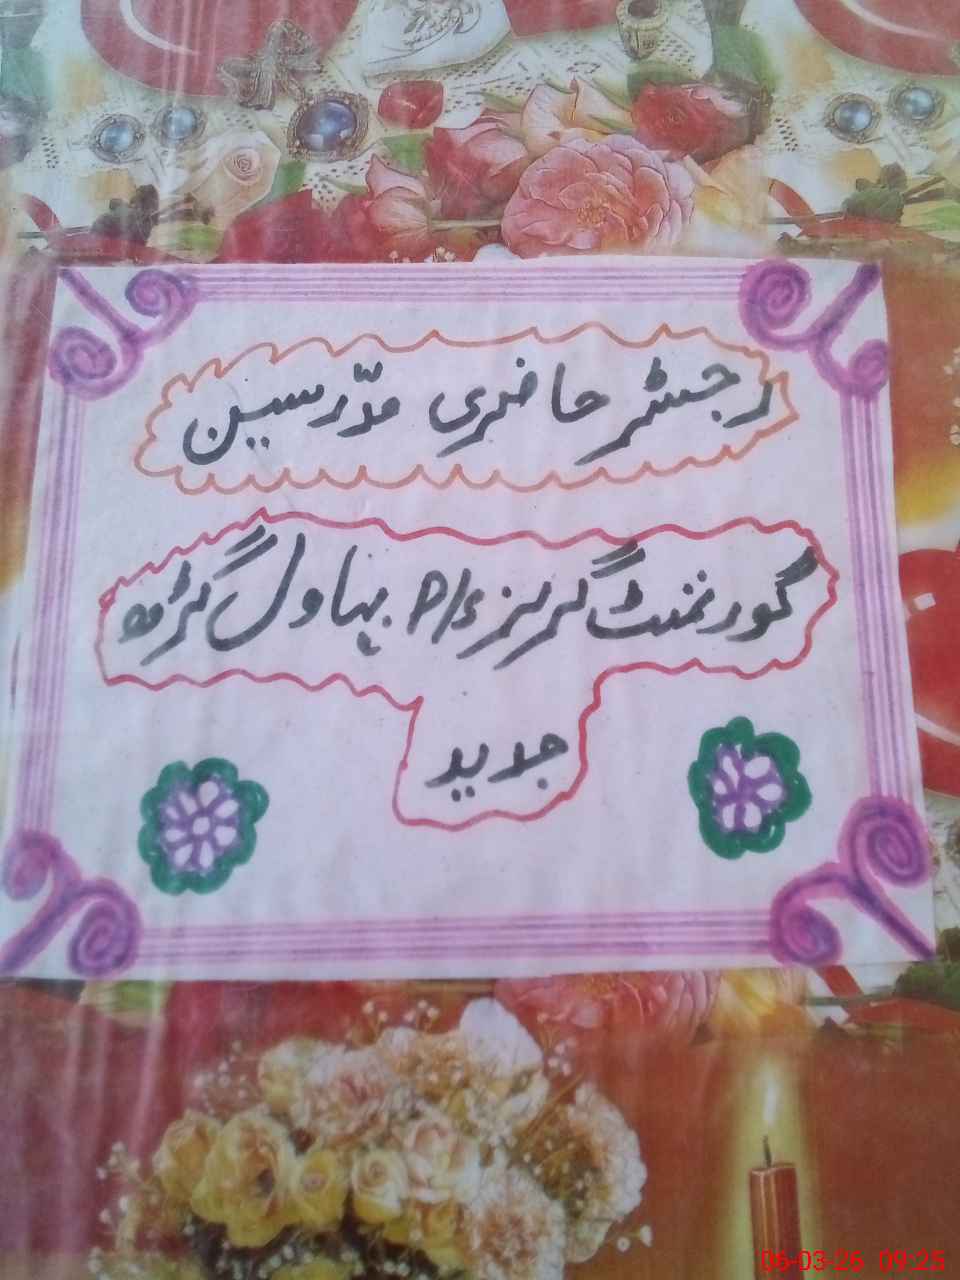 رجسٹر حاضری مدّرسین
گورنمنٹ گرلز P/S بہاول گڑھ
جدید
06-03-26 09:25